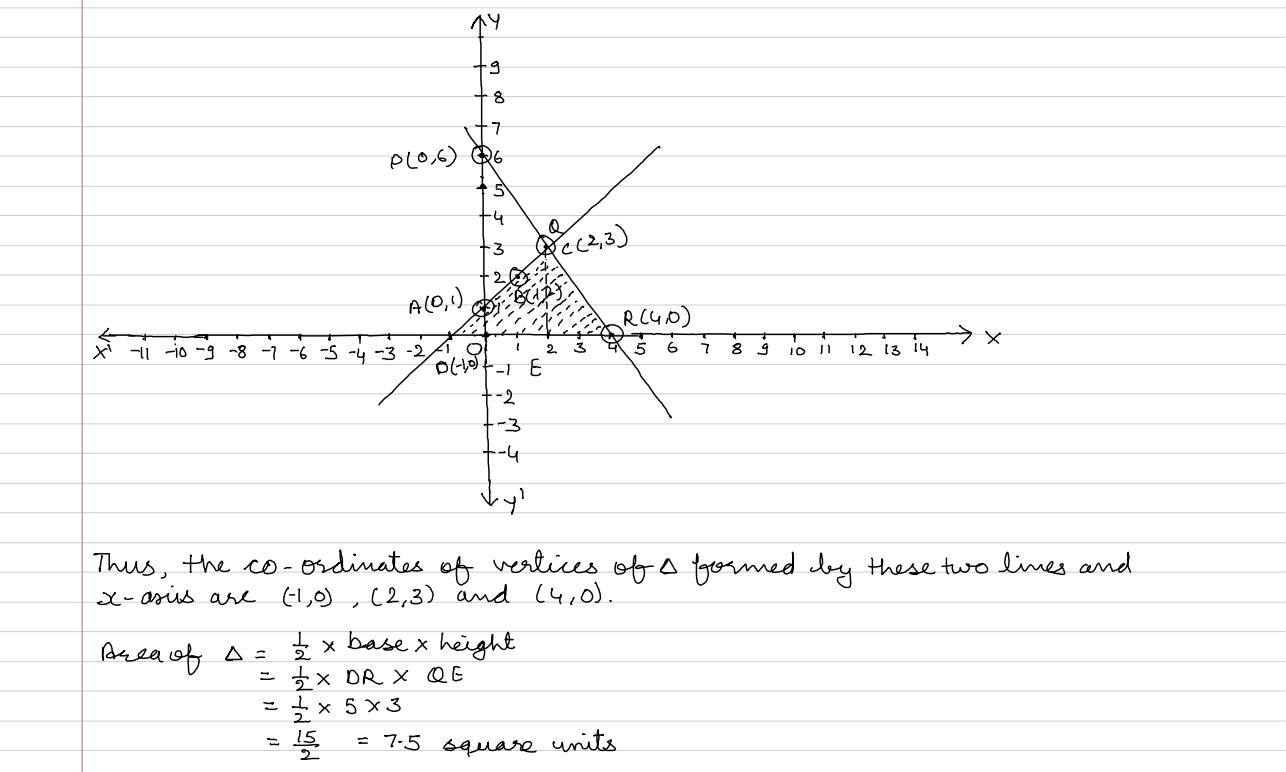 Y
9
8
7
P(0,6) 6
5
4
Q
3 C(2,3)
2
B(1,2)
A(0,1) 1
R(4,0)
X' -11 -10 -9 -8 -7 -6 -5 -4 -3 -2 -1 O 1 2 3 4 5 6 7 8 9 10 11 12 13 14 X
D(-1,0) -1 E
-2
-3
-4
Y'
Thus, the co-ordinates of vertices of Δ formed by these two lines and
x-axis are (-1,0) , (2,3) and (4,0).
Area of Δ = 1/2 × base × height
= 1/2 × DR × QE
= 1/2 × 5 × 3
= 15/2 = 7.5 square units